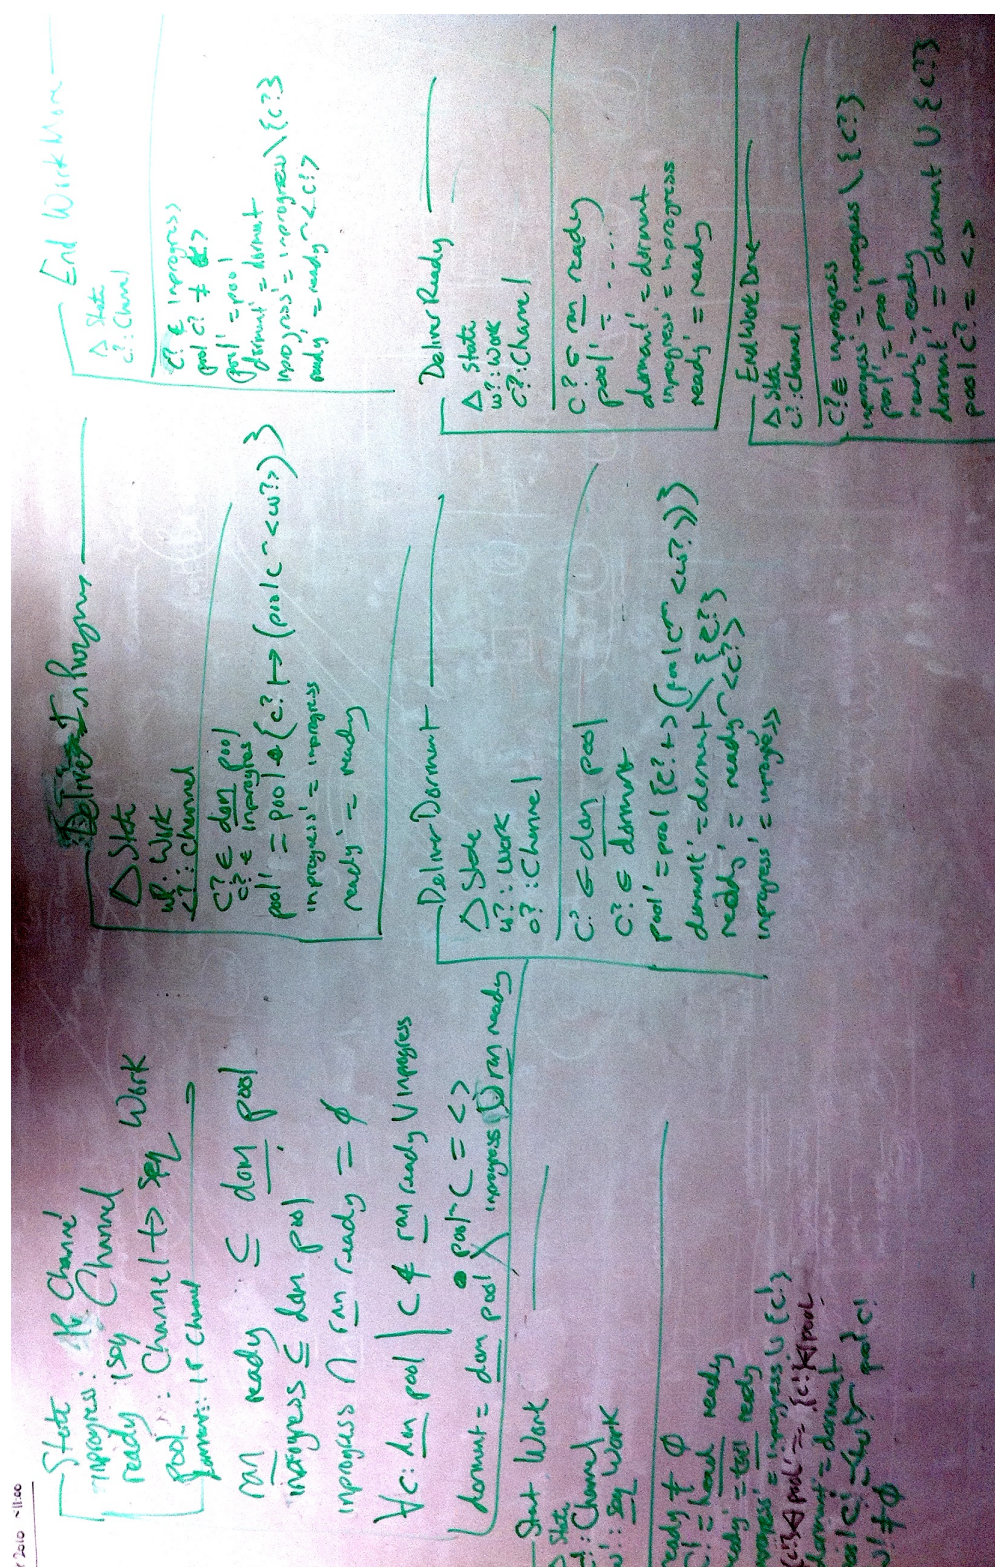 r 2010 ~11:00
State
inprogress: ℙ Channel
ready : iseq Channel
pool : Channel ⇸ seq Work
dormant: ℙ Channel
ran ready ⊆ dom pool
inprogress ⊆ dom pool
inprogress ∩ ran ready = ∅
∀c: dom pool | c ∉ ran ready ∪ inprogress
• pool c = <>
dormant = dom pool \ inprogress ∪ ran ready
Start Work
Δ State
c!: Channel
w!: seq Work
ready ≠ ∅
c! = head ready
ready' = tail ready
inprogress' = inprogress ∪ {c!}
{c!} ⩤ pool' = {c!} ⩤ pool
dormant' = dormant
w! ≠ ∅
Deliver In Progress
Δ State
w?: Work
c?: Channel
c? ∈ dom pool
c? ∈ inprogress
pool' = pool ⊕ {c? ↦ (pool c ⌢ <w?>)}
inprogress' = inprogress
ready' = ready
Deliver Dormant
Δ State
w?: Work
c?: Channel
c? ∈ dom pool
c? ∈ dormant
pool' = pool {c? ↦ (pool c ⌢ <w?>)}
dormant' = dormant \ {c?}
ready' = ready ⌢ <c?>
inprogress' = inprogress
End Work More
Δ State
c?: Channel
c? ∈ inprogress
pool c? ≠ <>
pool' = pool
dormant' = dormant
inprogress' = inprogress \ {c?}
ready' = ready ⌢ <c?>
Deliver Ready
Δ State
w?: Work
c?: Channel
c? ∈ ran ready
pool' = ....
dormant' = dormant
inprogress' = inprogress
ready' = ready
End Work Done
Δ State
c?: Channel
c? ∈ inprogress
inprogress' = inprogress \ {c?}
pool' = pool
ready' = ready
dormant' = dormant ∪ {c?}
pool c? = <>